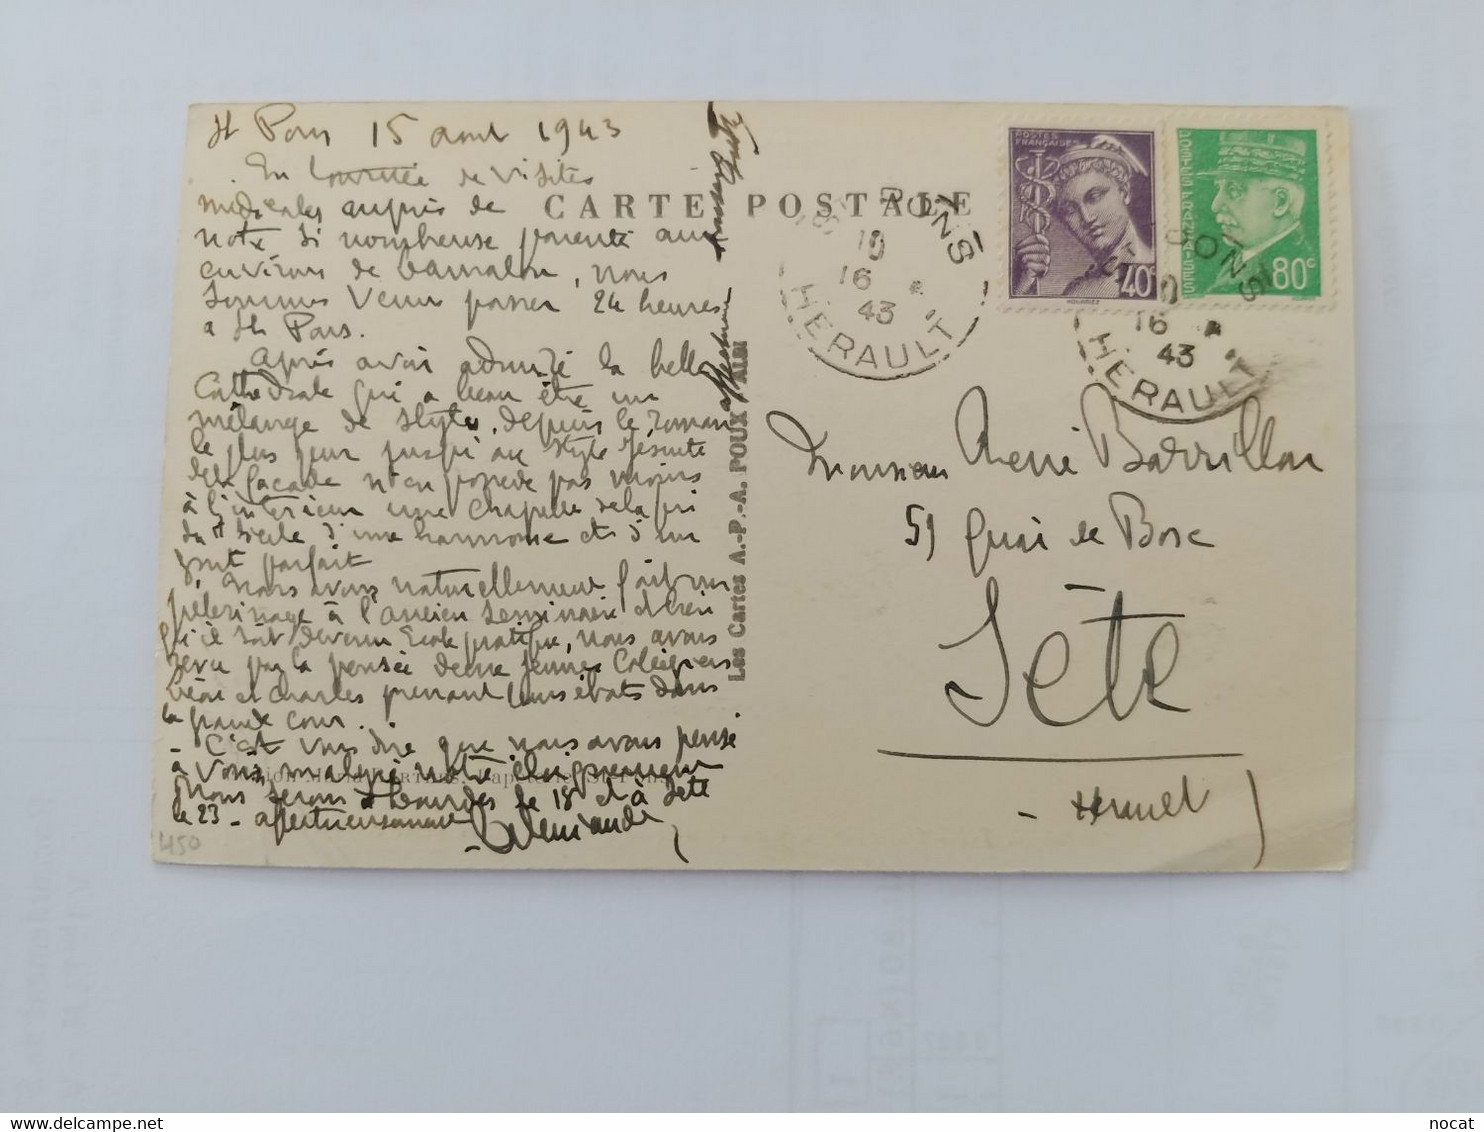 St Pons 15 aout 1943
En tournée de visites
médicales auprès de
notre si nombreuse parenté aux
environs de Lamalou, nous
sommes venus passer 24 heures
a St Pons.
Après avoir admiré la belle
Cathédrale qui a beau être un
mélange de styles, depuis le roman
le plus pur jusqu'au style Jésuite
de la façade n'en possède pas moins
à l'intérieur une Chapelle de la fin
du siècle d'une harmonie et d'un
gout parfait
Nous avons naturellement fait un
pèlerinage à l'ancien Séminaire et bien
qu'il soit devenu Ecole pratique, nous avons
revu par la pensée deux jeunes Collégiens
René et Charles prenant leurs ébats dans
la grande cour.
- C'est vous dire que nous avons pensé
à vous malgré notre éloignement
Nous serons à Lourdes le 18 et à Sète
le 23 - affectueusement
450
CARTE POSTALE
Les Cartes A.-P.-A. POUX - ALBI
POSTES
FRANÇAISES
40c
80c
POSTES FRANÇAISES
ST PONS
10
16
43
HERAULT
ST PONS
16
43
HERAULT
Monsieur René Barrillon
51 Quai de Bosc
Sète
- Herault
delcampe.net
nocat